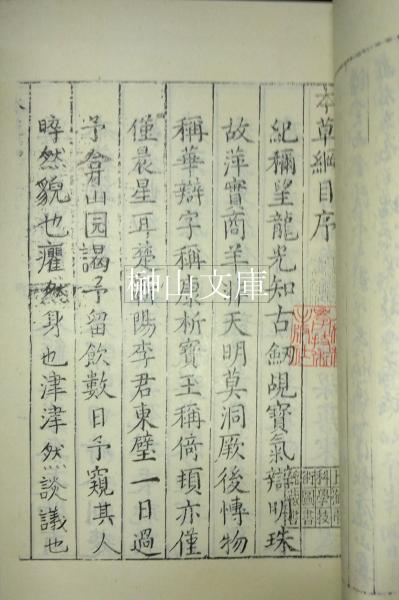 本草綱目序
紀稱望龍光知古劒覘寶氣辯明珠
故萍實商羊非天明莫洞厥後慱物
稱華辯字稱康析寶玉稱倚頓亦僅
僅晨星耳楚蘄陽李君東璧一日過
予弇山园謁予留飲數日予窺其人
睟然貌也癯然身也津津然談議也
榊山文庫